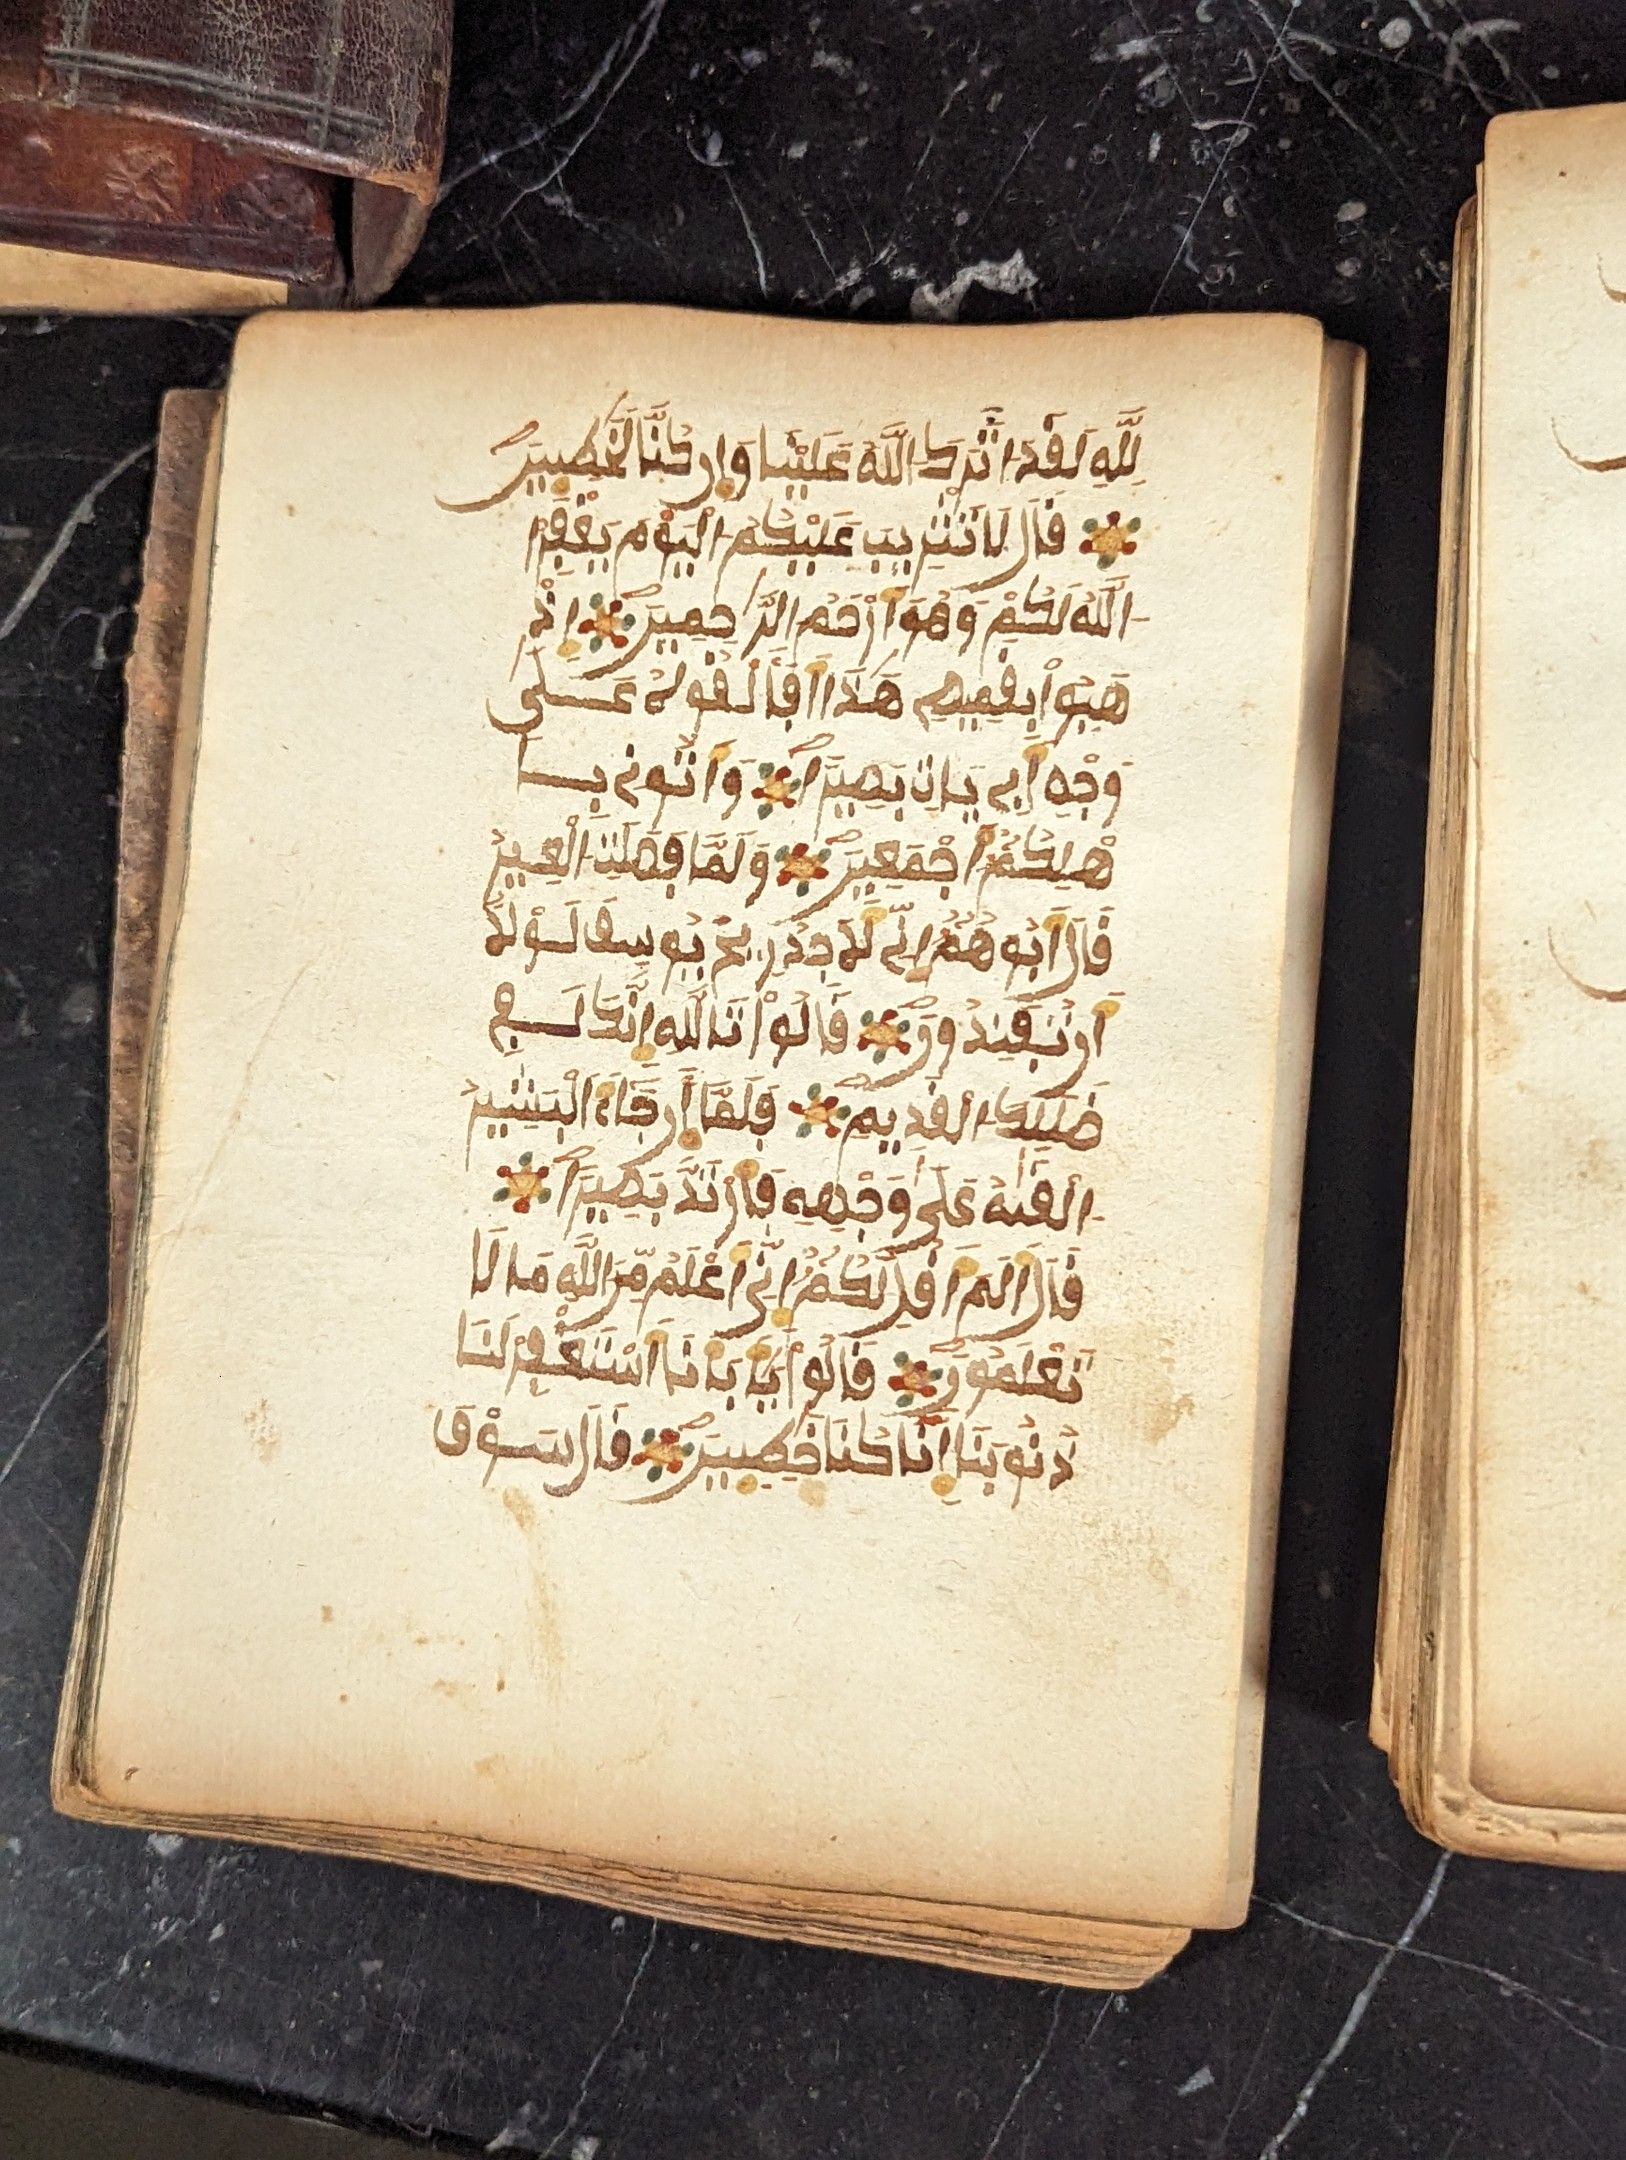 لِلَّهِ لَقَدَ اثَرَكَ اَللَّهُ عَلَيْنَا وَإِن كُنَّا لَخَٰطِـِٕينَ
قَالَ لَا تَثْرِيبَ عَلَيْكُمُ اُلْيَوْمَ يَغْفِرُ
اُللَّهُ لَكُمْ وَهُوَ أَرْحَمُ اُلرَّٰحِمِينَ اَ۪ذْ
هَبُوا۟ بِقَمِيصِے هَٰذَا فَأَلْقُوهُ عَلَىٰ
وَجْهِ أَبِے يَاتِ بَصِيرًا وَأْتُونِے بِأَ
هْلِكُمُۥٓ أَجْمَعِينَ وَلَمَّا فَصَلَتِ اِلْعِيرُ
قَالَ أَبُوهُمُۥٓ إِنِّے لَأَجِدُ رِيحَ يُوسُفَ لَوْلَآ
أَن تُفَنِّدُونِ قَالُوا۟ تَاللَّهِ إِنَّكَ لَفِے
ضَلَٰلِكَ اَلْقَدِيمِ فَلَمَّآ أَن جَآءَ اَلْبَشِيرُ
أَلْقَىٰهُ عَلَىٰ وَجْهِهِۦ فَارْتَدَّ بَصِيرًا
قَالَ أَلَمَ اَقُل لَّكُمُۥٓ إِنِّىَ أَعْلَمُ مِنَ اَللَّهِ مَا لَا
تَعْلَمُونَ قَالُوا۟ يَٰٓأَبَانَا اَ۪سْتَغْفِرْ لَنَا
ذُنُوبَنَآ إِنَّا كُنَّا خَٰطِـِٕينَ قَالَ سَوْفَ